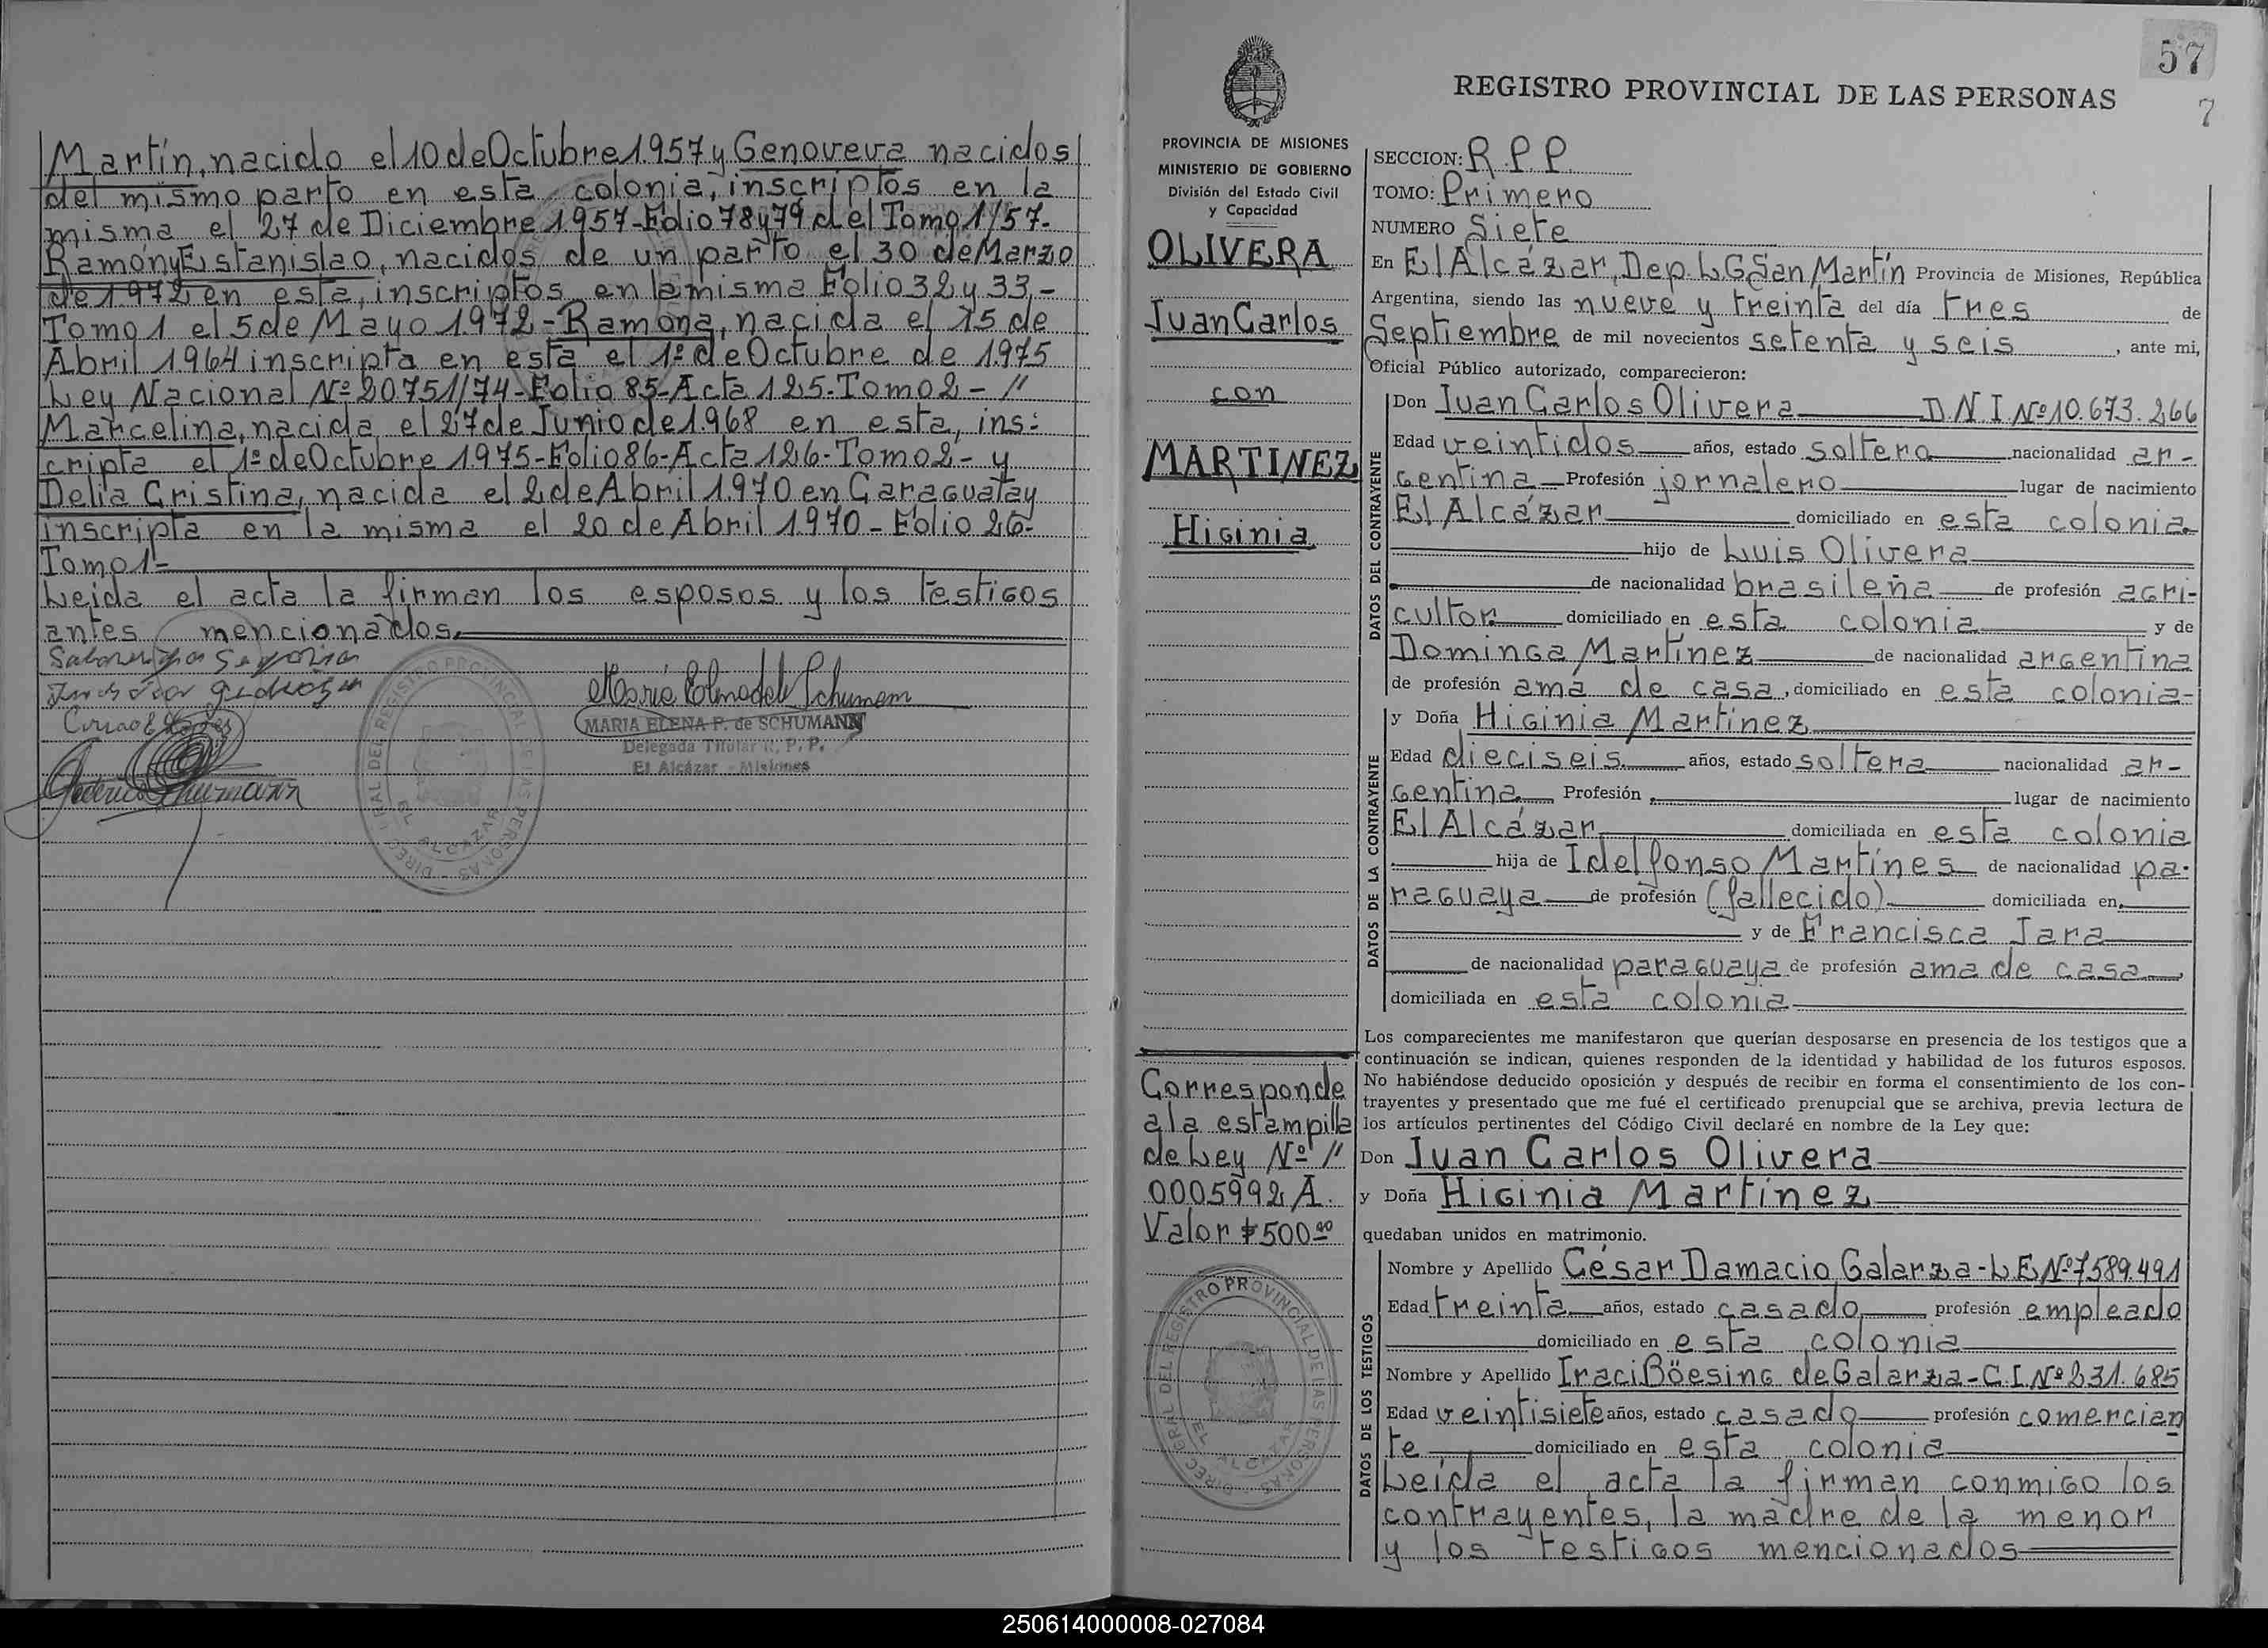 Martín, nacido el 10 de Octubre 1957 y Genoveva nacidos
del mismo parto en esta colonia, inscriptos en la
misma el 27 de Diciembre 1957-Folio 78 y 79 del Tomo 1/57-
Ramón y Estanislao, nacidos de un parto el 30 de Marzo
de 1972 en esta, inscriptos en la misma Folio 32 y 33,-
Tomo 1 el 5 de Mayo 1972-Ramona, nacida el 15 de
Abril 1964 inscripta en esta el 1º de Octubre de 1975
Ley Nacional Nº 20751/74-Folio 85-Acta 125-Tomo 2-//
Marcelina, nacida el 27 de Junio de 1968 en esta, ins-
cripta el 1º de Octubre 1975-Folio 86-Acta 126-Tomo 2- y
Delia Cristina, nacida el 2 de Abril 1970 en Caraguatay
inscripta en la misma el 20 de Abril 1970-Folio 26-
Tomo 1-
Leida el acta la firman los esposos y los testigos
antes mencionados.
MARIA ELENA P. de SCHUMANN
Delegada Titular R. P. P.
El Alcázar - Misiones
DIREC. GRAL DEL REGISTRO PROVINCIAL DE LAS PERSONAS
EL ALCAZAR
57
7
REGISTRO PROVINCIAL DE LAS PERSONAS
PROVINCIA DE MISIONES
MINISTERIO DE GOBIERNO
División del Estado Civil
y Capacidad
OLIVERA
Juan Carlos
con
MARTINEZ
Higinia
Corresponde
a la estampilla
de Ley Nº //
0005992 A.
Valor $500.00
DIREC. GRAL DEL REGISTRO PROVINCIAL DE LAS PERSONAS
EL ALCAZAR
SECCION: R.P.P.
TOMO: Primero
NUMERO Siete
En El Alcázar, Dep. L G San Martín Provincia de Misiones, República
Argentina, siendo las nueve y treinta del día tres de
Septiembre de mil novecientos setenta y seis, ante mi,
Oficial Público autorizado, comparecieron:
DATOS DEL CONTRAYENTE
Don Juan Carlos Olivera D.N.I. Nº 10.673.266
Edad veintidos años, estado soltero nacionalidad ar-
gentina Profesión jornalero lugar de nacimiento
El Alcázar domiciliado en esta colonia
hijo de Luis Olivera
de nacionalidad brasileña de profesión agri-
cultor domiciliado en esta colonia y de
Dominga Martínez de nacionalidad argentina
de profesión ama de casa, domiciliado en esta colonia-
DATOS DE LA CONTRAYENTE
y Doña Higinia Martínez
Edad dieciseis años, estado soltera nacionalidad ar-
gentina Profesión lugar de nacimiento
El Alcázar domiciliada en esta colonia
hija de Idelfonso Martínes de nacionalidad pa-
raguaya de profesión (fallecido) domiciliada en
y de Francisca Jara
de nacionalidad paraguaya de profesión ama de casa,
domiciliada en esta colonia
Los comparecientes me manifestaron que querían desposarse en presencia de los testigos que a
continuación se indican, quienes responden de la identidad y habilidad de los futuros esposos.
No habiéndose deducido oposición y después de recibir en forma el consentimiento de los con-
trayentes y presentado que me fué el certificado prenupcial que se archiva, previa lectura de
los artículos pertinentes del Código Civil declaré en nombre de la Ley que:
Don Juan Carlos Olivera
y Doña Higinia Martínez
quedaban unidos en matrimonio.
DATOS DE LOS TESTIGOS
Nombre y Apellido César Damacio Galarza-L E Nº 7589.491
Edad treinta años, estado casado profesión empleado
domiciliado en esta colonia
Nombre y Apellido Iraci Böesing de Galarza-C.I. Nº 231.685
Edad veintisiete años, estado casado profesión comercian
te domiciliado en esta colonia
Leída el acta la firman conmigo los
contrayentes, la madre de la menor
y los testigos mencionados
250614000008-027084